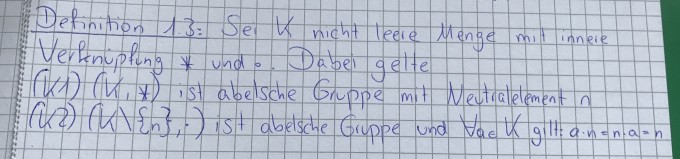 Definition 1.3: Sei K nicht leere Menge mit innere
Verknüpfung * und ∘. Dabei gelte
(K1) (K, *) ist abelsche Gruppe mit Neutralelement n
(K2) (K\{n}, ·) ist abelsche Gruppe und ∀a∈K gilt: a·n=n·a=n